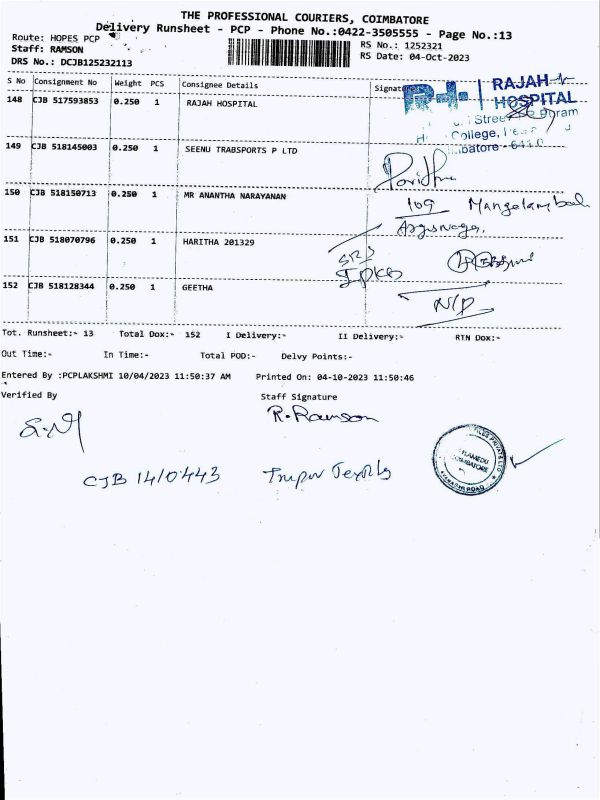 THE PROFESSIONAL COURIERS, COIMBATORE
Delivery Runsheet - PCP - Phone No.:0422-3505555 - Page No.:13
Route: HOPES PCP
RS No.: 1252321
Staff: RAMSON
RS Date: 04-Oct-2023
DRS No.: DCJB125232113
S No Consignment No Weight PCS Consignee Details Signature
RAJAH
HOSPITAL
148 CJB 517593853 0.250 1 RAJAH HOSPITAL
Street
College,
149 CJB 518145003 0.250 1 SEENU TRABSPORTS P LTD
150 CJB 518150713 0.250 1 MR ANANTHA NARAYANAN
109
151 CJB 518070796 0.250 1 HARITHA 201329
152 CJB 518128344 0.250 1 GEETHA
N/P
Tot. Runsheet:- 13 Total Dox:- 152 I Delivery:- II Delivery:- RTN Dox:-
Out Time:- In Time:- Total POD:- Delvy Points:-
Entered By :PCPLAKSHMI 10/04/2023 11:50:37 AM Printed On: 04-10-2023 11:50:46
Verified By Staff Signature
R. Ramson
CJB 1410443
COIMBATORE